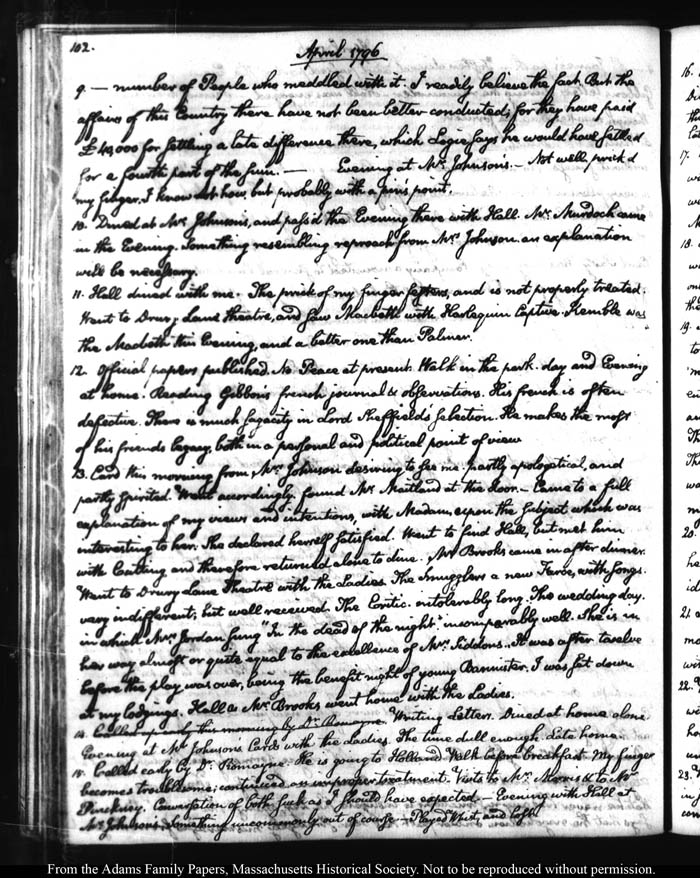 102.
April 1796
9. — number of People who meddled with it. I readily believe the fact. But the
affairs of this Country there have not been better conducted; for they have paid
£40,000 for settling a late difference there, which Logie says he would have settled
for a fourth part of the sum. — Evening at Mr. Johnson's. — Not well, prick'd
my finger. I know not how, but probably with a pin's point.
10. Dined at Mr. Johnson's, and pass'd the Evening there with Hall. Mr. Murdoch came
in the Evening. Something resembling reproach from Mrs. Johnson. an explanation
will be necessary.
11. Hall dined with me. The prick of my finger festers, and is not properly treated.
Went to Drury Lane theatre, and saw Macbeth with Harlequin Captive. Kemble was
the Macbeth this Evening, and a better one than Palmer.
12. Official papers published. No Peace at present. Walk in the park. day and Evening
at home. Reading Gibbon's french journal & observations. His french is often
defective. There is much sagacity in Lord Sheffield's selection. He makes the most
of his friends legacy, both in a personal and political point of view
13. Card this morning from Mrs. Johnson desiring to see me. partly apologetical, and
partly spirited. Went accordingly. found Mr. Maitland at the door. — Came to a full
explanation of my views and intentions, with Madam, upon the subject which was
interesting to her. She declared herself satisfied. Went to find Hall, but met him
with Cutting and therefore returned alone to dine. Mr. Brooks came in after dinner.
Went to Drury Lane Theatre with the Ladies. The Smugglers a new Farce, with songs.
very indifferent; but well received. The Critic. intolerably long. The wedding day.
in which Mrs. Jordan sung "In the dead of the night" incomparably well. She is in
her way almost or quite equal to the excellence of Mrs. Siddons. It was after twelve
before the play was over, being the benefit night of young Bannister. I was set down
at my lodgings. Hall & Mr. Brooks went home with the Ladies.
14. Called up early this morning by Dr. Romayne. Writing Letters. Dined at home alone
Evening at Mr. Johnson's Cards with the Ladies. The time dull enough. Late home.
15. Called early by Dr. Romayne. He is going to Holland. Walk before breakfast. My finger
becomes troublesome; continued an improper treatment. Visits to Mr. Morris & to Mr.
Pinckney. Conversation of both such as I should have expected. — Evening with Hall at
Mr. Johnson's; something uncommonly out of course — Played Whist, and lost.
16.
17.
18.
19.
20.
21.
22.
23.
From the Adams Family Papers, Massachusetts Historical Society. Not to be reproduced without permission.